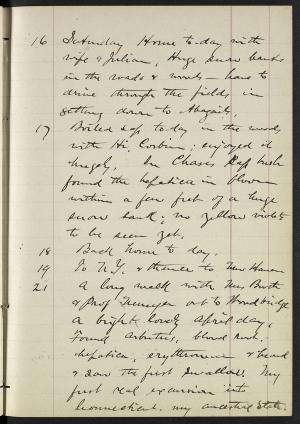 16 Saturday Home to-day with
wife & Julian, Huge snow banks
in the roads & woods – have to
drive through the fields in
getting down to Abigails.
17 Boiled sap to-day in the woods
with Hi. Corbin; enjoyed it
hugely. In Chases Sap bush
found the hepatica in bloom
within a few feet of a huge
snow bank; no yellow violets
to be seen yet.
18 Back home to day.
19 To N.Y. & thence to New Haven
21 A long walk with Mrs Booth
& Prof out to Woodbridge
a bright lovely April day,
Found Arbutus, blood root,
hepatica, erythronium & heard
& saw the first swallow. My
first real excursion into
Connecticut. my ancestral State.